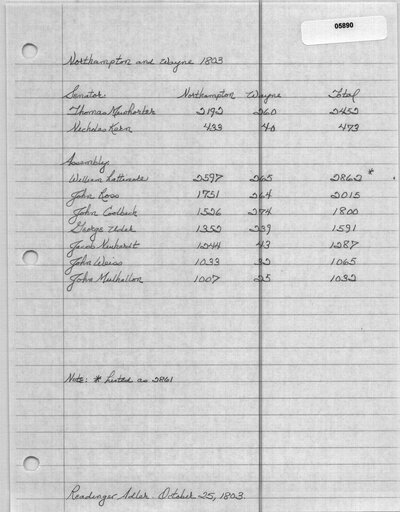 05890
Northampton and Wayne 1803
Senator: Northampton Wayne Total
Thomas 2192 260 2452
Nicholas Kern 433 40 473
Assembly:
William Lattimore 2597 265 2862 *
John Ross 1751 264 2015
John Coolbach 1526 274 1800
George 1352 239 1591
Jacob Newhardt 1244 43 1287
John Weiss 1033 32 1065
John Mulhallon 1007 25 1032
Note: * Listed as 2861
Readinger Adler. October 25, 1803.